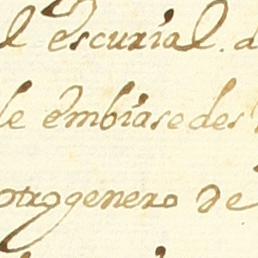 l escurial. d
le embiasedes
otro genero de